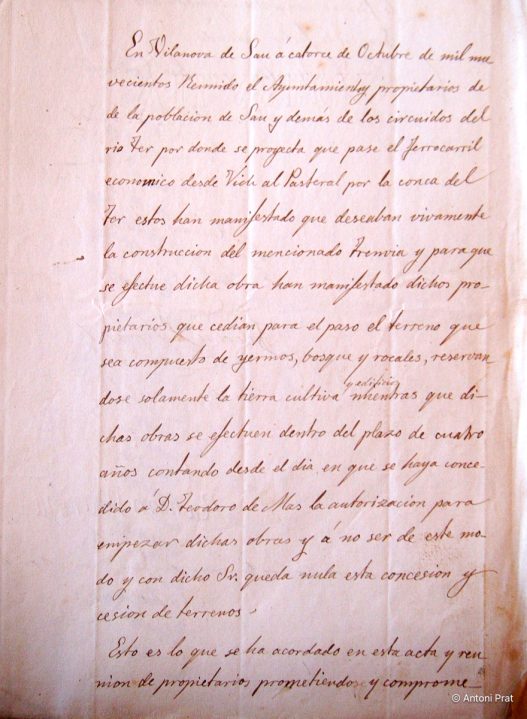 En Vilanova de Sau á catorce de Octubre de mil nue
vecientos Reunido el Ayuntamiento y propietarios de
de la poblacion de Sau y demás de los circuidos del
rio Ter por donde se proyecta que pase el Ferrocarril
economico desde Vich al Pasteral por la conca del
Ter estos han manifestado que deseaban vivamente
la construccion del mencionado Trenvia y para que
se efectue dicha obra han manifestado dichos pro-
pietarios que cedian para el paso el terreno que
sea compuesto de yermos, bosque y rocales, reservan-
dose solamente la tierra cultiva y edificios mientras que di-
chas obras se efectuen dentro del plazo de cuatro
años contando desde el dia en que se haya conce-
dido á D. Teodoro de Mas la autorizacion para
empezar dichas obras y á no ser de este mo-
do y con dicho Sr. queda nula esta concesion y
cesion de terrenos.
Esto es lo que se ha acordado en esta acta y reu
nion de propietarios prometiendose y comprome-
© Antoni Prat